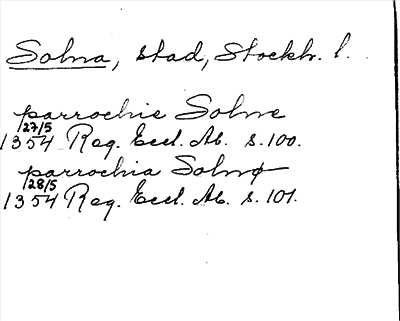 Solna, stad, Stockh. l.
parrochie Solne
27/5
1354 Reg. Eccl. Ab. s. 100.
parrochia Solnø
28/5
1354 Reg. Eccl. Ab. s. 101.